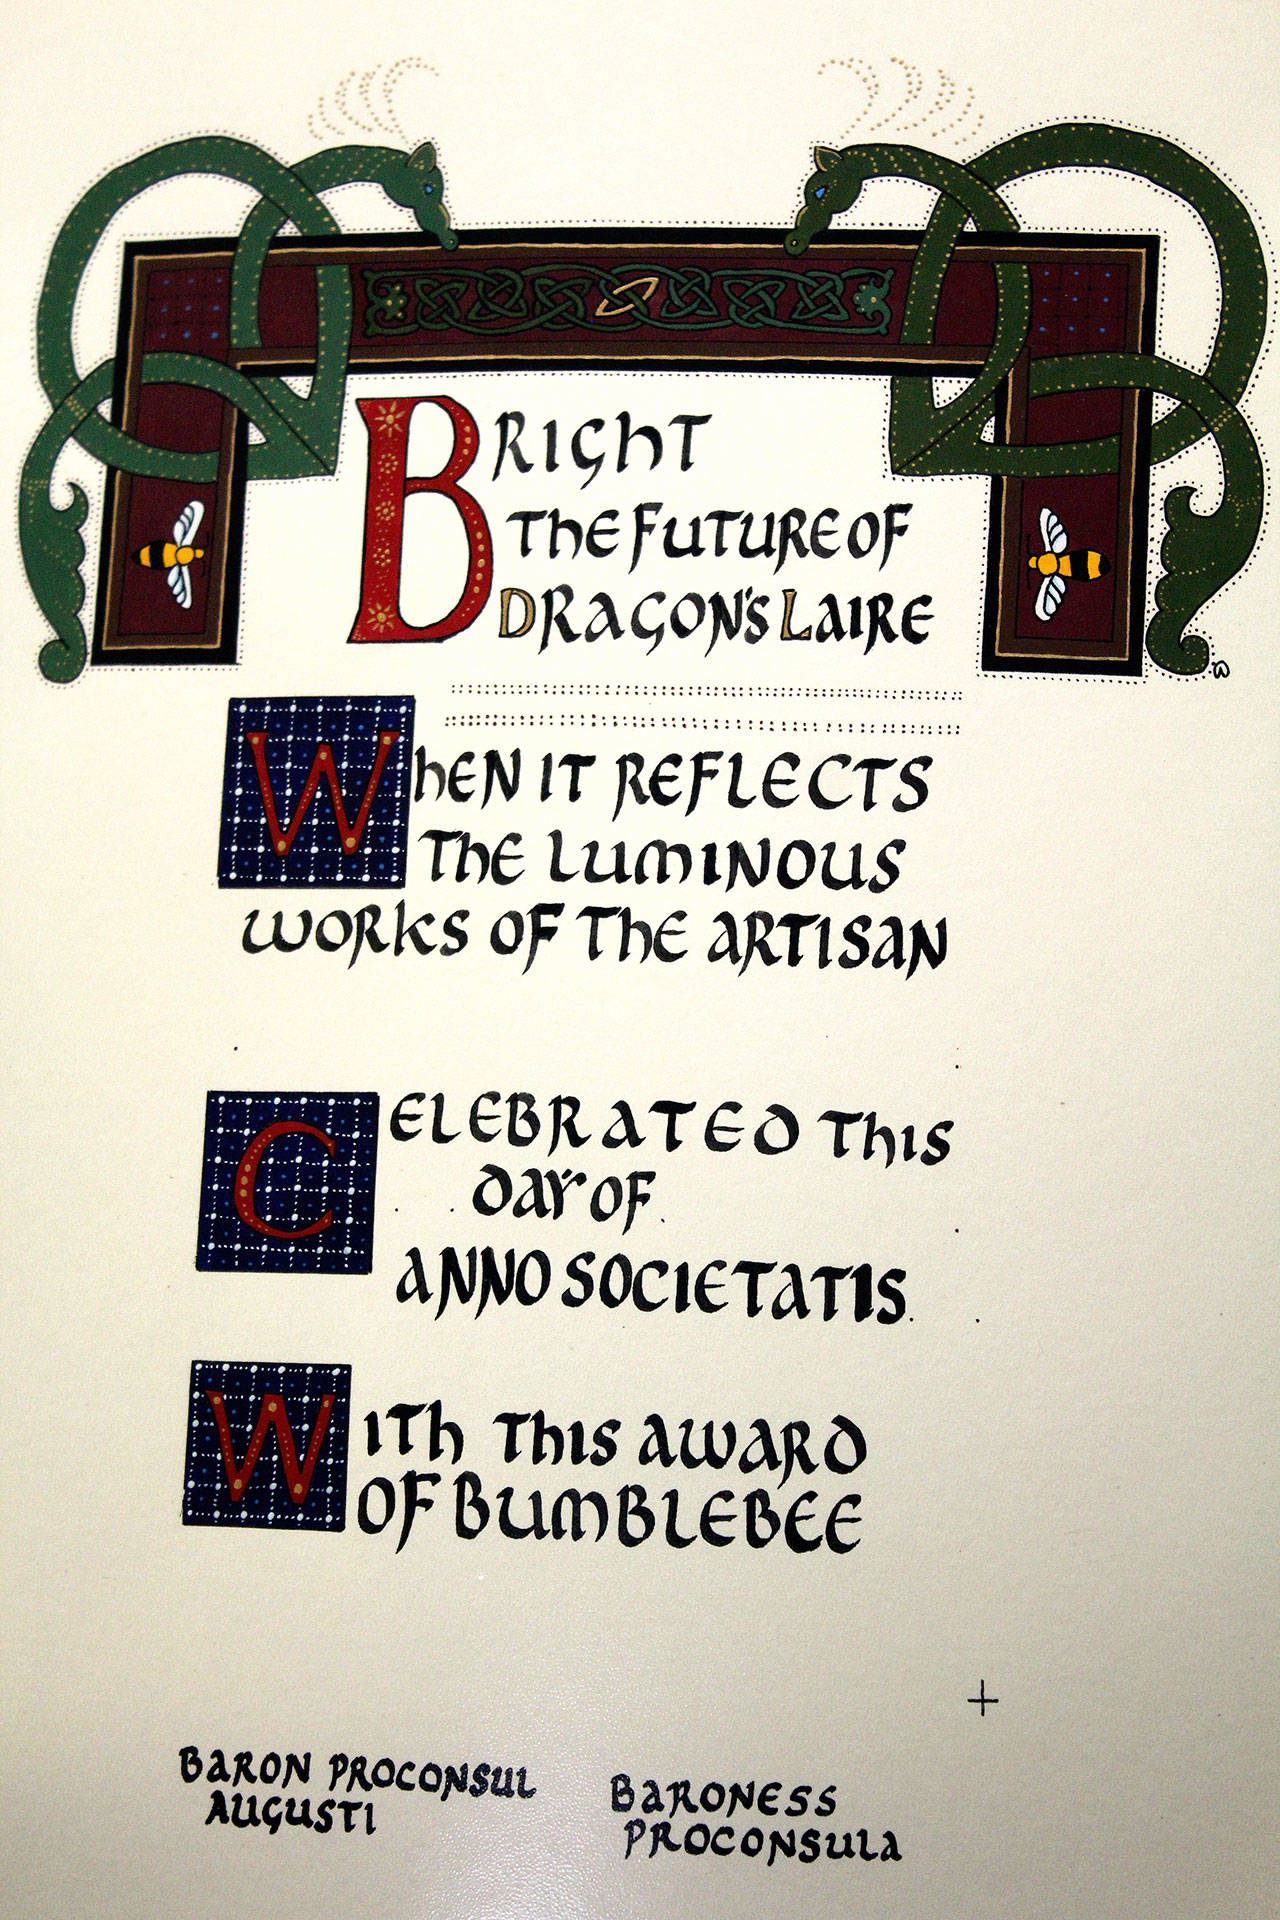 BRIGHT
THE FUTURE OF
DRAGON'S LAIRE
WHEN IT REFLECTS
THE LUMINOUS
WORKS OF THE ARTISAN
CELEBRATED THIS
DAY OF
ANNO SOCIETATIS
WITH THIS AWARD
OF BUMBLEBEE
BARON PROCONSUL
AUGUSTI
BARONESS
PROCONSULA